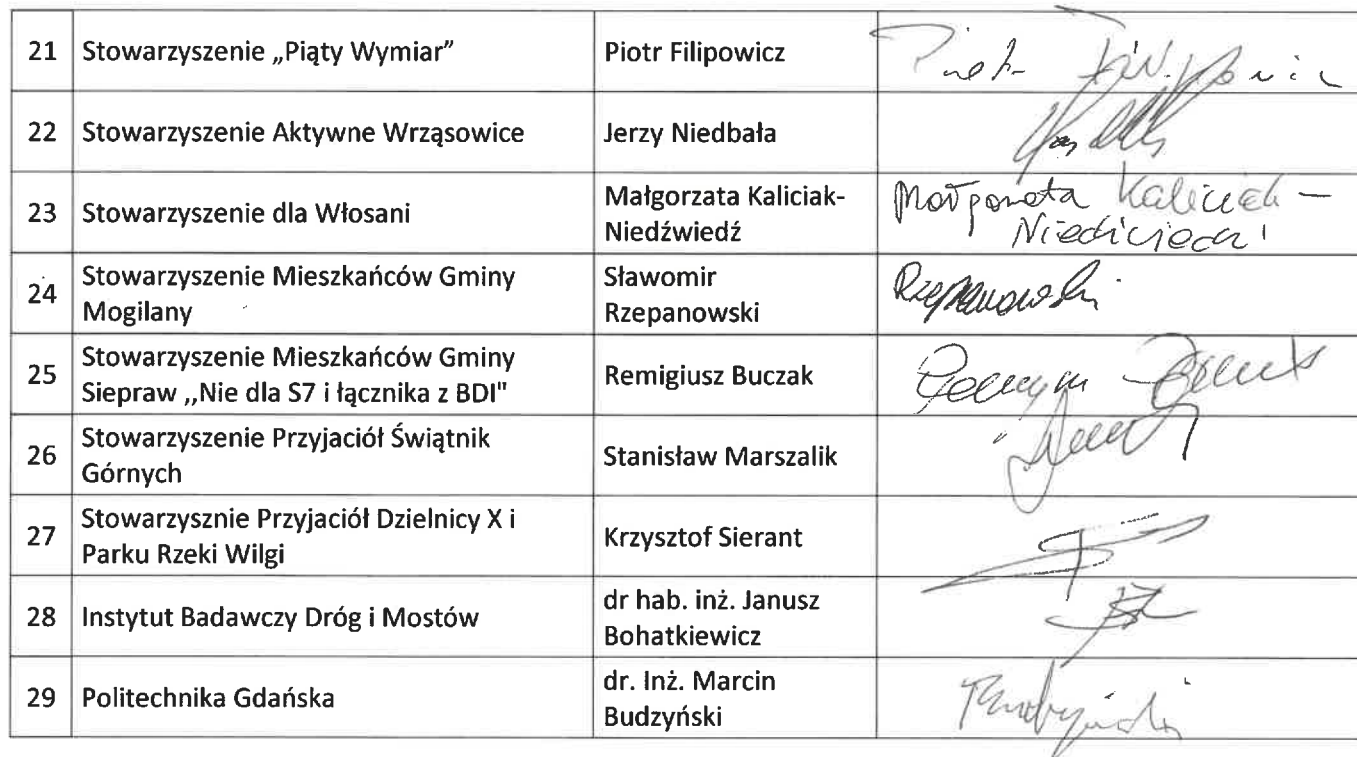 21 Stowarzyszenie „Piąty Wymiar” Piotr Filipowicz Piotr Filipowicz
22 Stowarzyszenie Aktywne Wrząsowice Jerzy Niedbała
23 Stowarzyszenie dla Włosani Małgorzata Kaliciak- Małgorzata Kaliciak –
Niedźwiedź Niedźwiedź
24 Stowarzyszenie Mieszkańców Gminy Sławomir Rzepanowski
Mogilany Rzepanowski
25 Stowarzyszenie Mieszkańców Gminy Remigiusz Buczak
Siepraw ,,Nie dla S7 i łącznika z BDI"
26 Stowarzyszenie Przyjaciół Świątnik Stanisław Marszalik
Górnych
27 Stowarzysznie Przyjaciół Dzielnicy X i Krzysztof Sierant
Parku Rzeki Wilgi
28 Instytut Badawczy Dróg i Mostów dr hab. inż. Janusz
Bohatkiewicz
29 Politechnika Gdańska dr. Inż. Marcin Budzyński
Budzyński